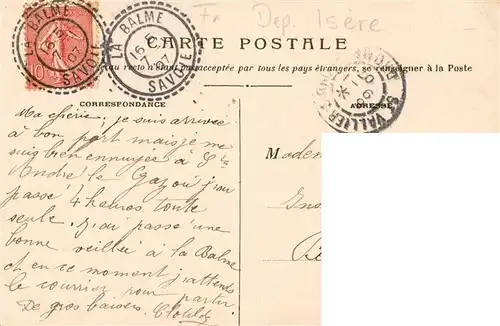 Fr Dep. Isere
LA BALME
16 - 5
07
SAVOIE
LA BALME
16 - 5
07
SAVOIE
CARTE POSTALE
au recto n'est pas acceptée par tous les pays étrangers, se renseigner à la Poste
CORRESPONDANCE
ADRESSE
Ma chérie, je suis arrivée
à bon port mais je me
suis bien ennuyée à St
André le Gaz où j'ai
passé 4 heures toute
seule. J'ai passé une
bonne veillée à la Balme
et en ce moment j'attends
le courrier pour partir
De gros baisers. Clotilde
Madem
Ins